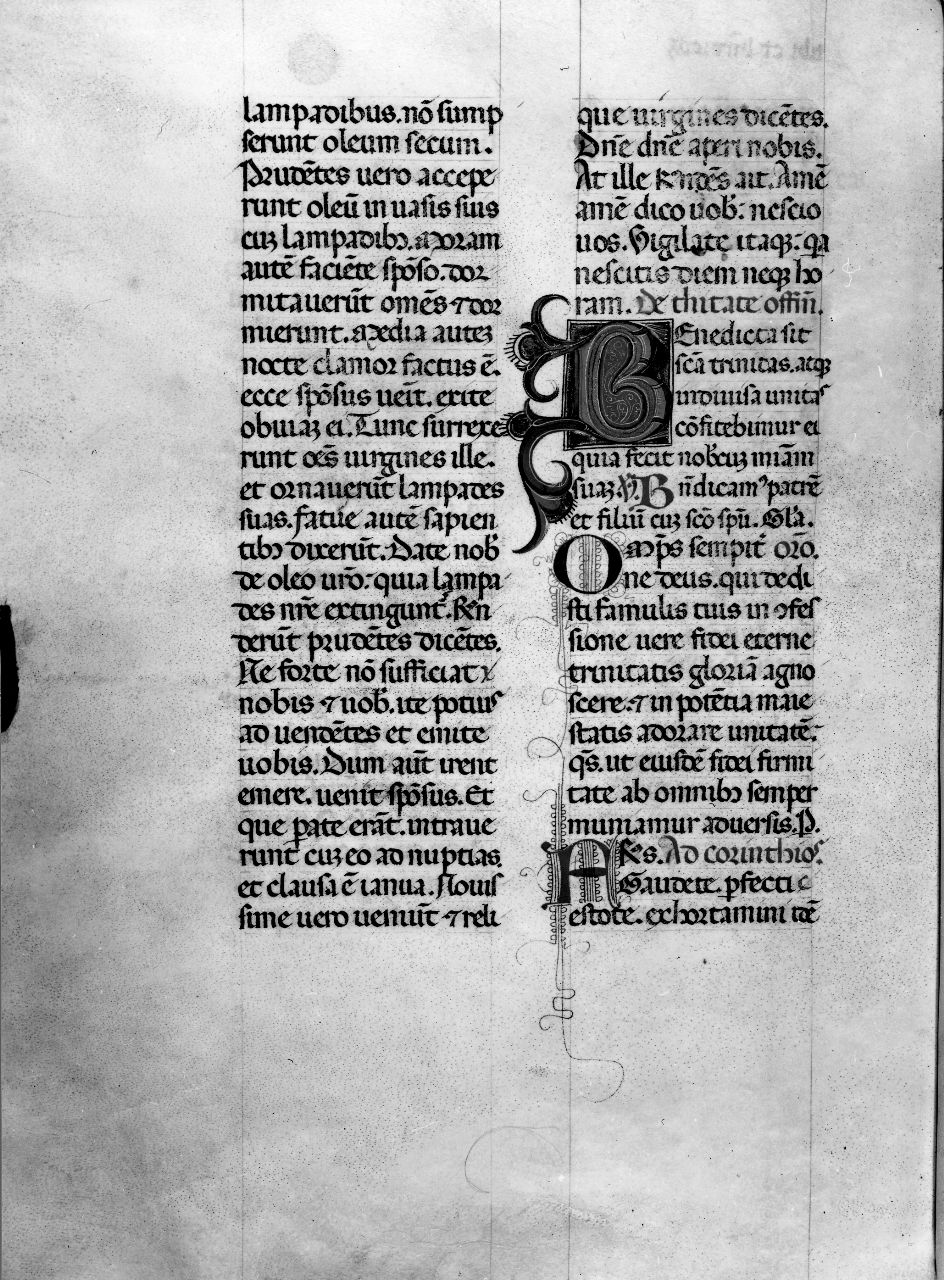 lampadibus. nõ sump
serunt oleum secum.
Prudẽtes uero accepe
runt oleũ in uasis suis
cuʒ lampadibꝫ. Moram
autẽ faciẽte spõso: dor
mitauerũt omẽs ⁊ dor
mierunt. Media auteʒ
nocte clamor factus ẽ.
ecce spõsus ueĩt. exite
obuiaʒ ei. Tunc surrexe
runt oẽs uirgines ille.
et ornauerũt lampades
suas. fatue autẽ sapien
tibꝫ dixerũt. Date nob̾
de oleo ur̃o: quia lampa
des nr̃e extingunt᷑. R̃n
derũt prudẽtes dicẽtes.
Ne forte nõ sufficiat
nobis ⁊ uob̾. ite potiuˢ
ad uendẽtes et emite
uobis. Dum aũt irent
emere. uenit spõsus. Et
que ꝑate erãt. intraue
runt cuʒ eo ad nuptias.
et clausa ẽ ianua. Nouis
sime uero ueniũt ⁊ reli
que uirgines dicẽtes.
Dñe dñe aperi nobis.
At ille r̃ndẽs ait. Amẽ
amẽ dico uob̾: nescio
uos. Vigilate itaqꝫ: qa
nescitis diem neqꝫ ho
ram. De t̾nitate offm̃.
Benedicta sit
sc̃a trinitas. atqꝫ
indiuisa unitaˢ
cõfitebimur ei
quia fecit nob̾cuʒ miãm
suaʒ. V̾. Bñdicamꝰ patrẽ
et filiũ cuʒ sc̃o spũ. Gl̃a.
Omp̃s sempit᷑ oro.
ne deus. qui dedi
sti famulis tuis in ꝯfes
sione uere fidei eterne
trinitatis gloriã agno
scere: ⁊ in potẽtia maie
statis adorare unitatẽ:
q̃s. ut eiusdẽ fidei firmi
tate ab omnibꝫ semper
muniamur aduersis. P.
Fr̃es. Ad corinthioˢ.
Gaudete. ꝑfecti
estote. exhortamini idẽ